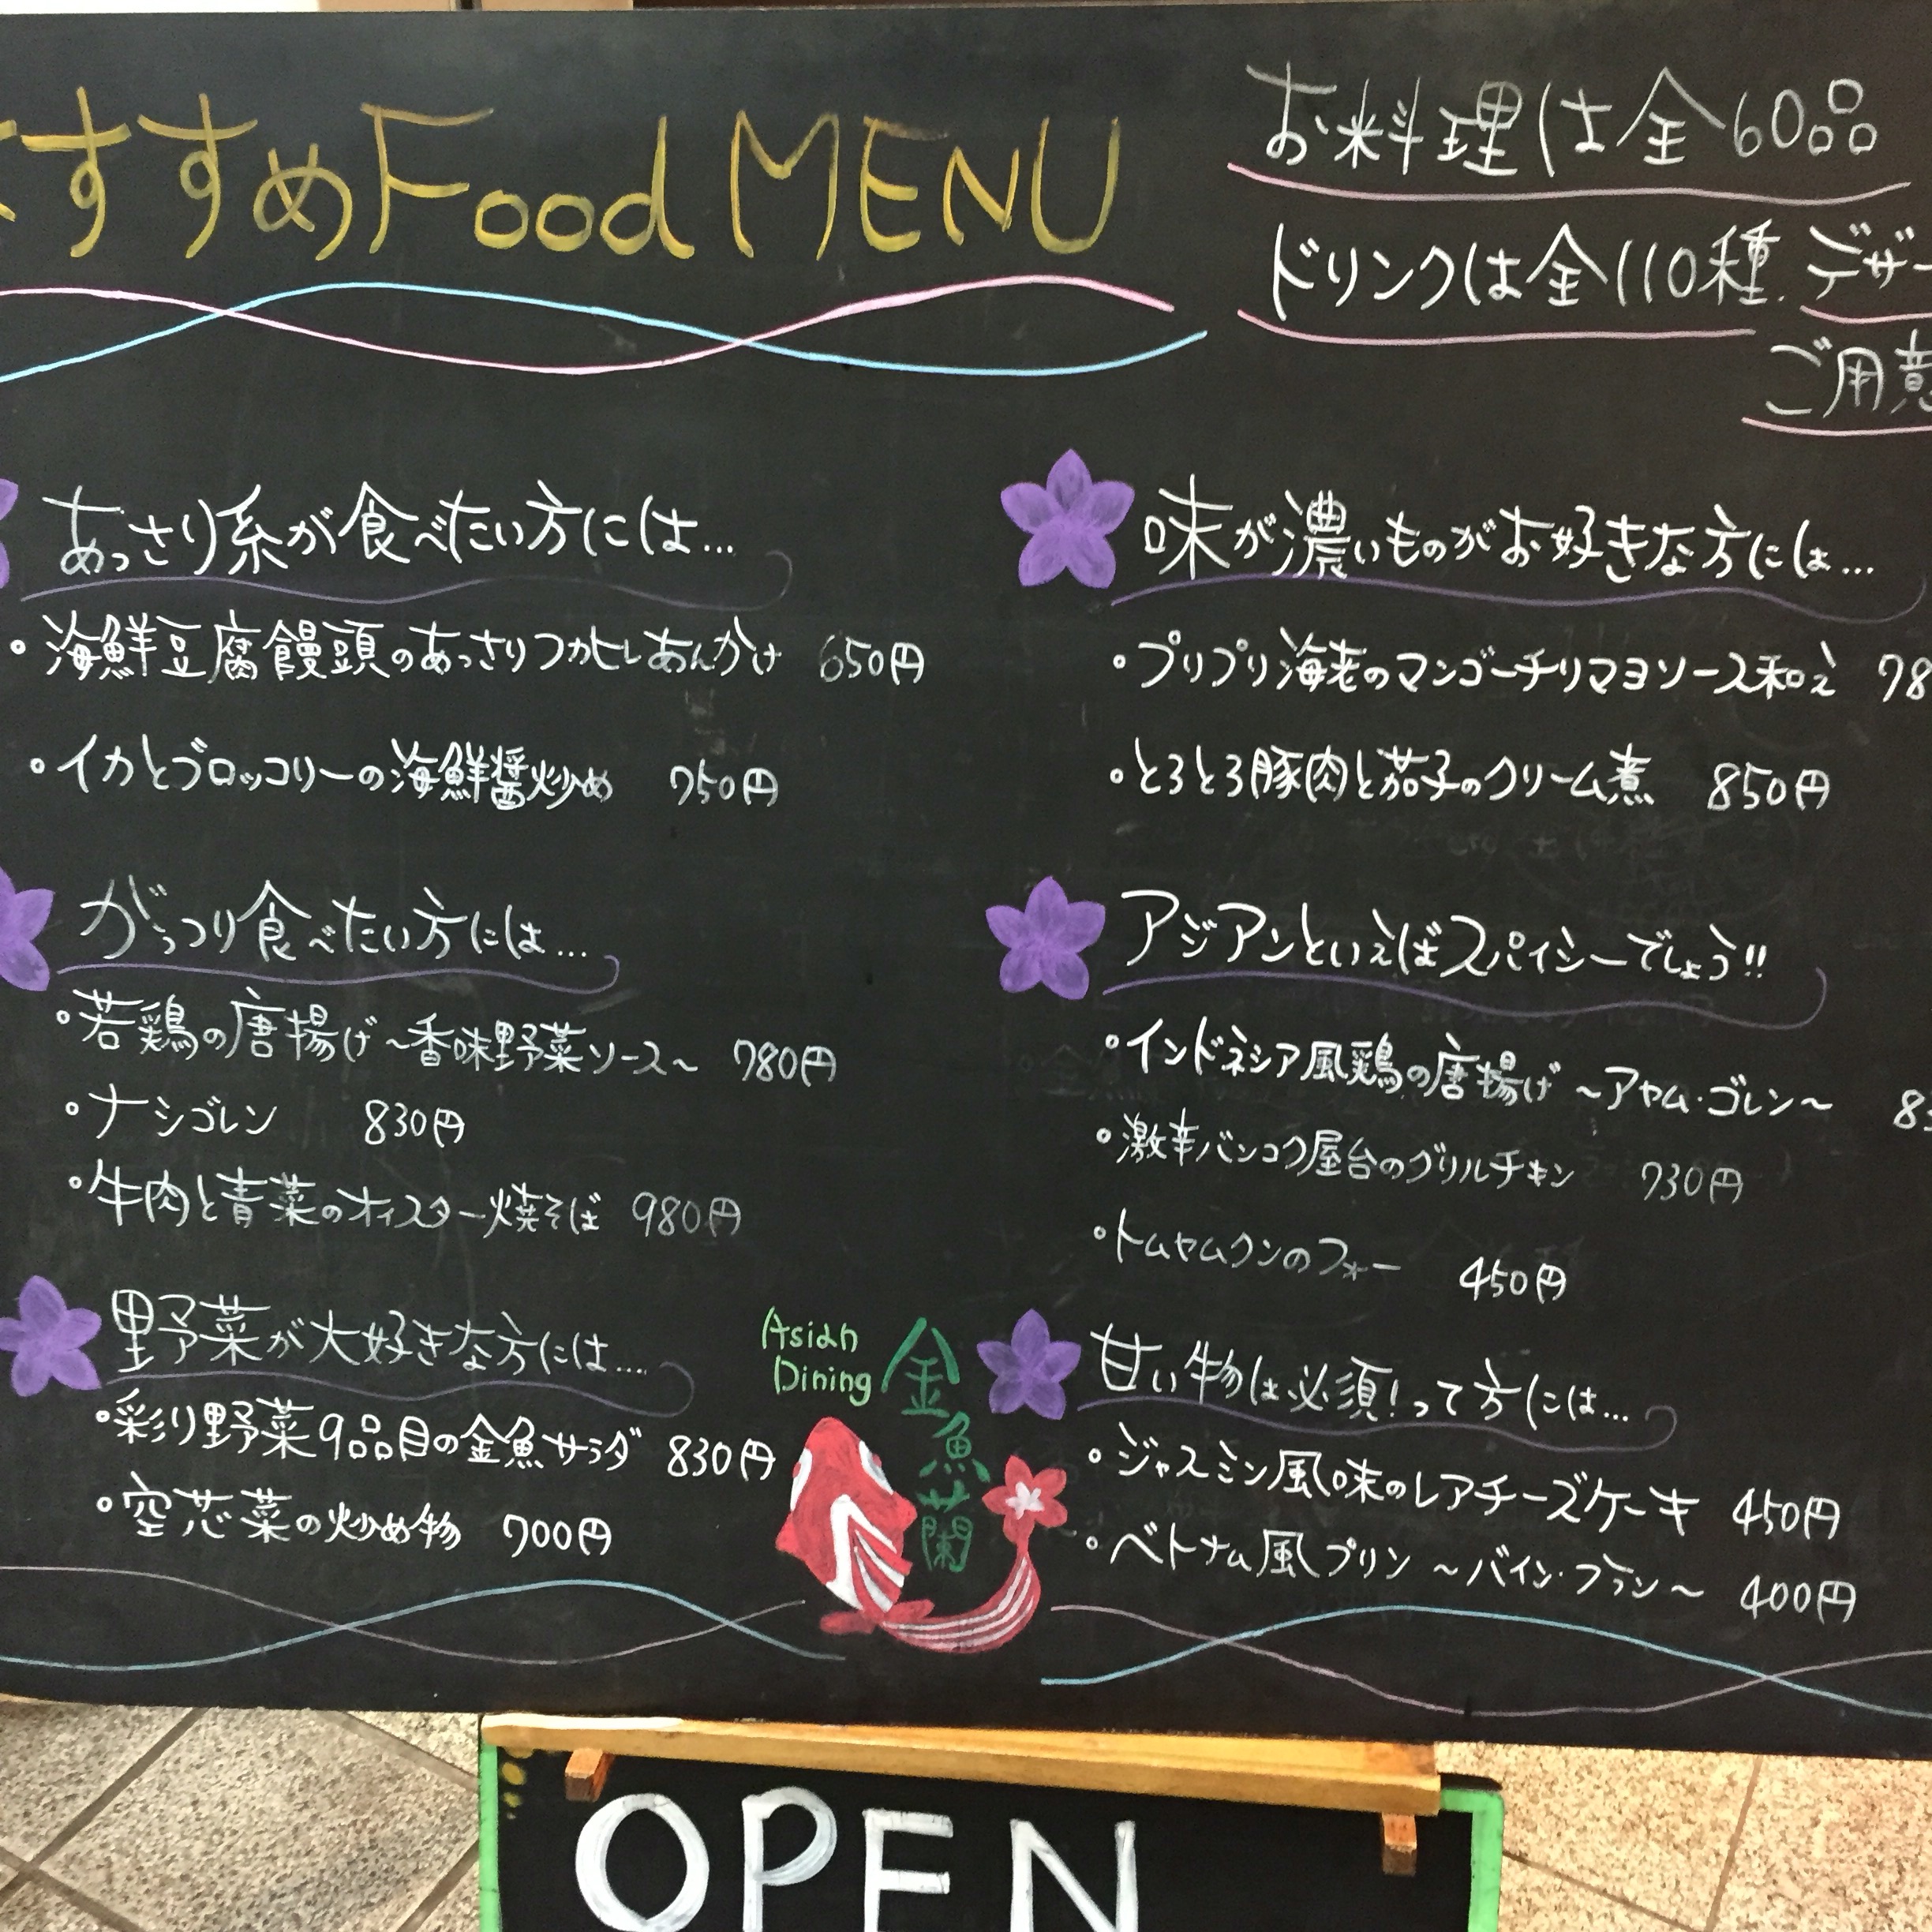 すすめFood MENU
お料理は全60品
ドリンクは全110種.デザー
ご用意
あっさり系が食べたい方には...
・海鮮豆腐饅頭のあっさりフカヒレあんかけ 650円
・イカとブロッコリーの海鮮醤炒め 750円
がっつり食べたい方には...
・若鶏の唐揚げ~香味野菜ソース~ 780円
・ナシゴレン 830円
・牛肉と青菜のオイスター焼そば 980円
野菜が大好きな方には....
・彩り野菜9品目の金魚サラダ 830円
・空芯菜の炒め物 700円
味が濃いものがお好きな方には...
・プリプリ海老のマンゴーチリマヨソース和え 78
・とろとろ豚肉と茄子のクリーム煮 850円
アジアンといえばスパイシーでしょう!!
・インドネシア風鶏の唐揚げ ~アヤム・ゴレン~ 8
・激辛バンコク屋台のグリルチキン 730円
・トムヤムクンのフォー 450円
甘い物は必須!って方には...
・ジャスミン風味のレアチーズケーキ 450円
・ベトナム風プリン ~バイン・フラン~ 400円
Asian
Dining
金魚蘭
OPEN